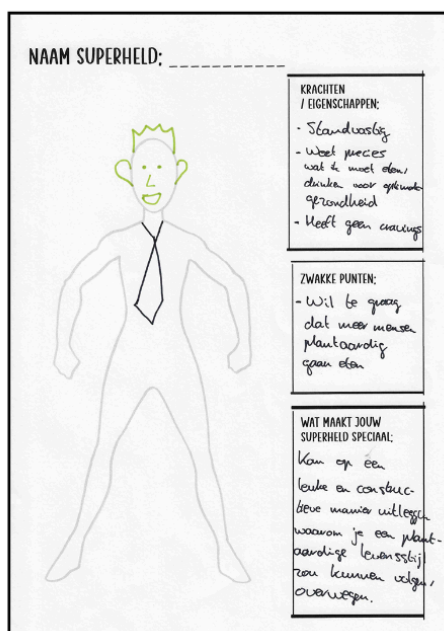 NAAM SUPERHELD: ____________
KRACHTEN
/ EIGENSCHAPPEN:
- Standvastig
- Weet precies
wat ik moet eten/
drinken voor optimale
gezondheid
- Heeft geen cravings
ZWAKKE PUNTEN:
- Wil te graag
dat meer mensen
plantaardig
gaan eten
WAT MAAKT JOUW
SUPERHELD SPECIAAL:
Kan op een
leuke en construc-
tieve manier uitleggen
waarom je een plant-
aardige levensstijl
zou kunnen volgen/
overwegen.